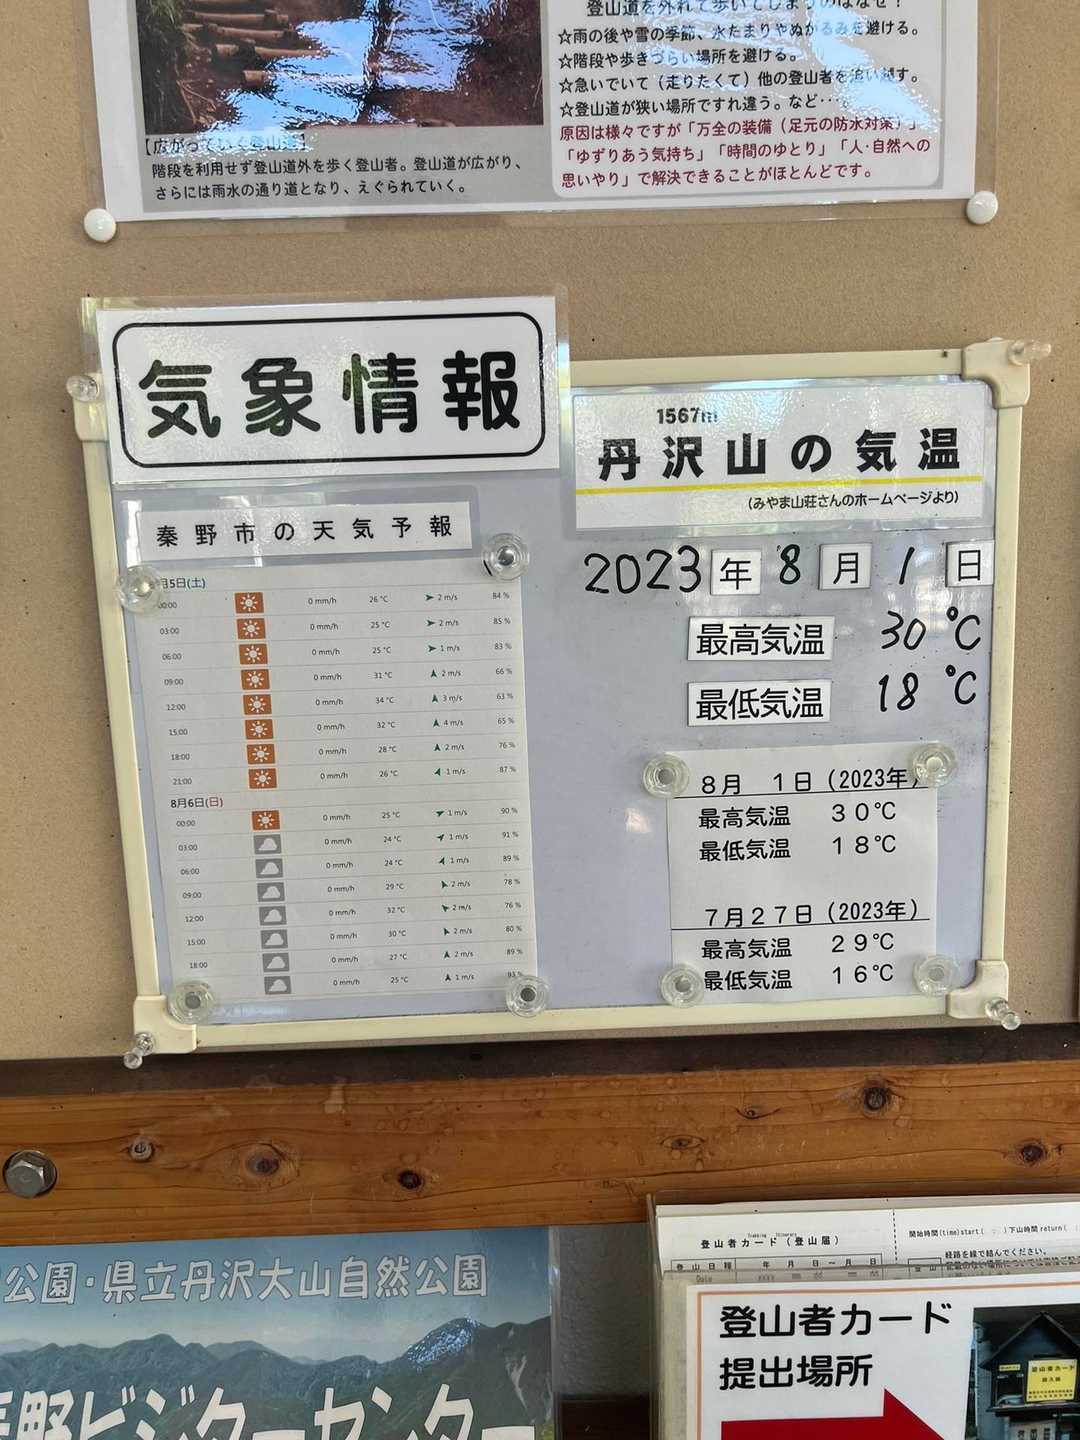 登山道を外れて歩いてしまうのはなぜ？
☆雨の後や雪の季節、水たまりやぬかるみを避ける。
☆階段や歩きづらい場所を避ける。
☆急いでいて（走りたくて）他の登山者を追い越す。
☆登山道が狭い場所ですれ違う。など・・・
原因は様々ですが「万全の装備（足元の防水対策）」
「ゆずりあう気持ち」「時間のゆとり」「人・自然への
思いやり」で解決できることがほとんどです。
【広がっていく登山道】
階段を利用せず登山道外を歩く登山者。登山道が広がり、
さらには雨水の通り道となり、えぐられていく。
気象情報
秦野市の天気予報
月5日(土)
00:00 0 mm/h 26 °C 2 m/s 84 %
03:00 0 mm/h 25 °C 2 m/s 85 %
06:00 0 mm/h 25 °C 1 m/s 83 %
09:00 0 mm/h 31 °C 2 m/s 66 %
12:00 0 mm/h 34 °C 3 m/s 63 %
15:00 0 mm/h 32 °C 4 m/s 65 %
18:00 0 mm/h 28 °C 2 m/s 76 %
21:00 0 mm/h 26 °C 1 m/s 87 %
8月6日(日)
00:00 0 mm/h 25 °C 1 m/s 90 %
03:00 0 mm/h 24 °C 1 m/s 91 %
06:00 0 mm/h 24 °C 1 m/s 89 %
09:00 0 mm/h 29 °C 2 m/s 78 %
12:00 0 mm/h 32 °C 2 m/s 76 %
15:00 0 mm/h 30 °C 2 m/s 80 %
18:00 0 mm/h 27 °C 2 m/s 89 %
0 mm/h 25 °C 1 m/s 93 %
1567m
丹沢山の気温
(みやま山荘さんのホームページより)
2023年8月1日
最高気温 30℃
最低気温 18℃
8月 1日（2023年）
最高気温 30℃
最低気温 18℃
7月27日（2023年）
最高気温 29℃
最低気温 16℃
公園・県立丹沢大山自然公園
野ビジターセンター
登山者カード（登山届）
登山日程 年 月 日～ 月 日
開始時間(time)start( : )下山時間return(
経路を線で結んでください。
登山者カード
提出場所
登山者カード